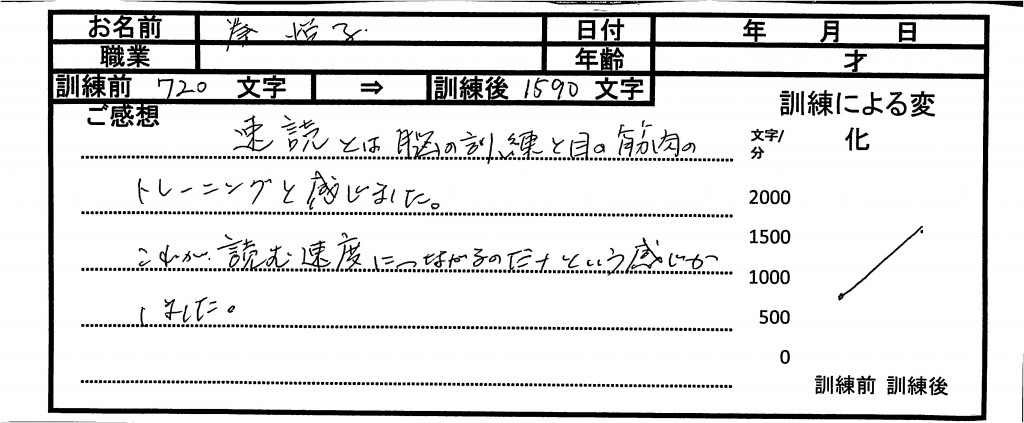 お名前 悟子 日付 年 月 日
職業 年齢 才
訓練前 720 文字 ⇒ 訓練後 1590 文字
ご感想
速読とは脳の訓練と目の筋肉の
トレーニングと感じました。
これが、読む速度につながるのだなという感じが
しました。
訓練による変
化
文字/
分
2000
1500
1000
500
0
訓練前 訓練後